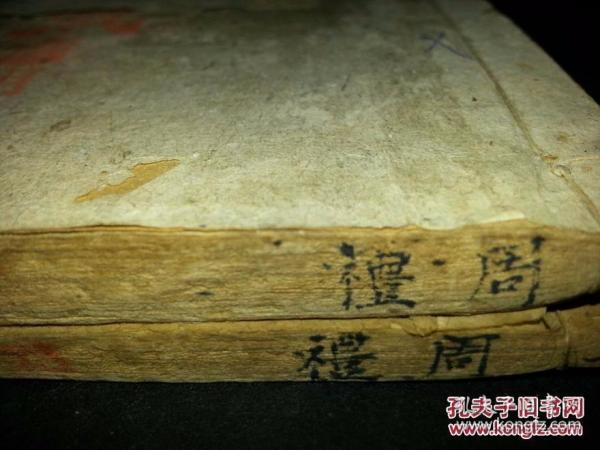 周禮
周禮
孔夫子旧书网
www.kongfz.com